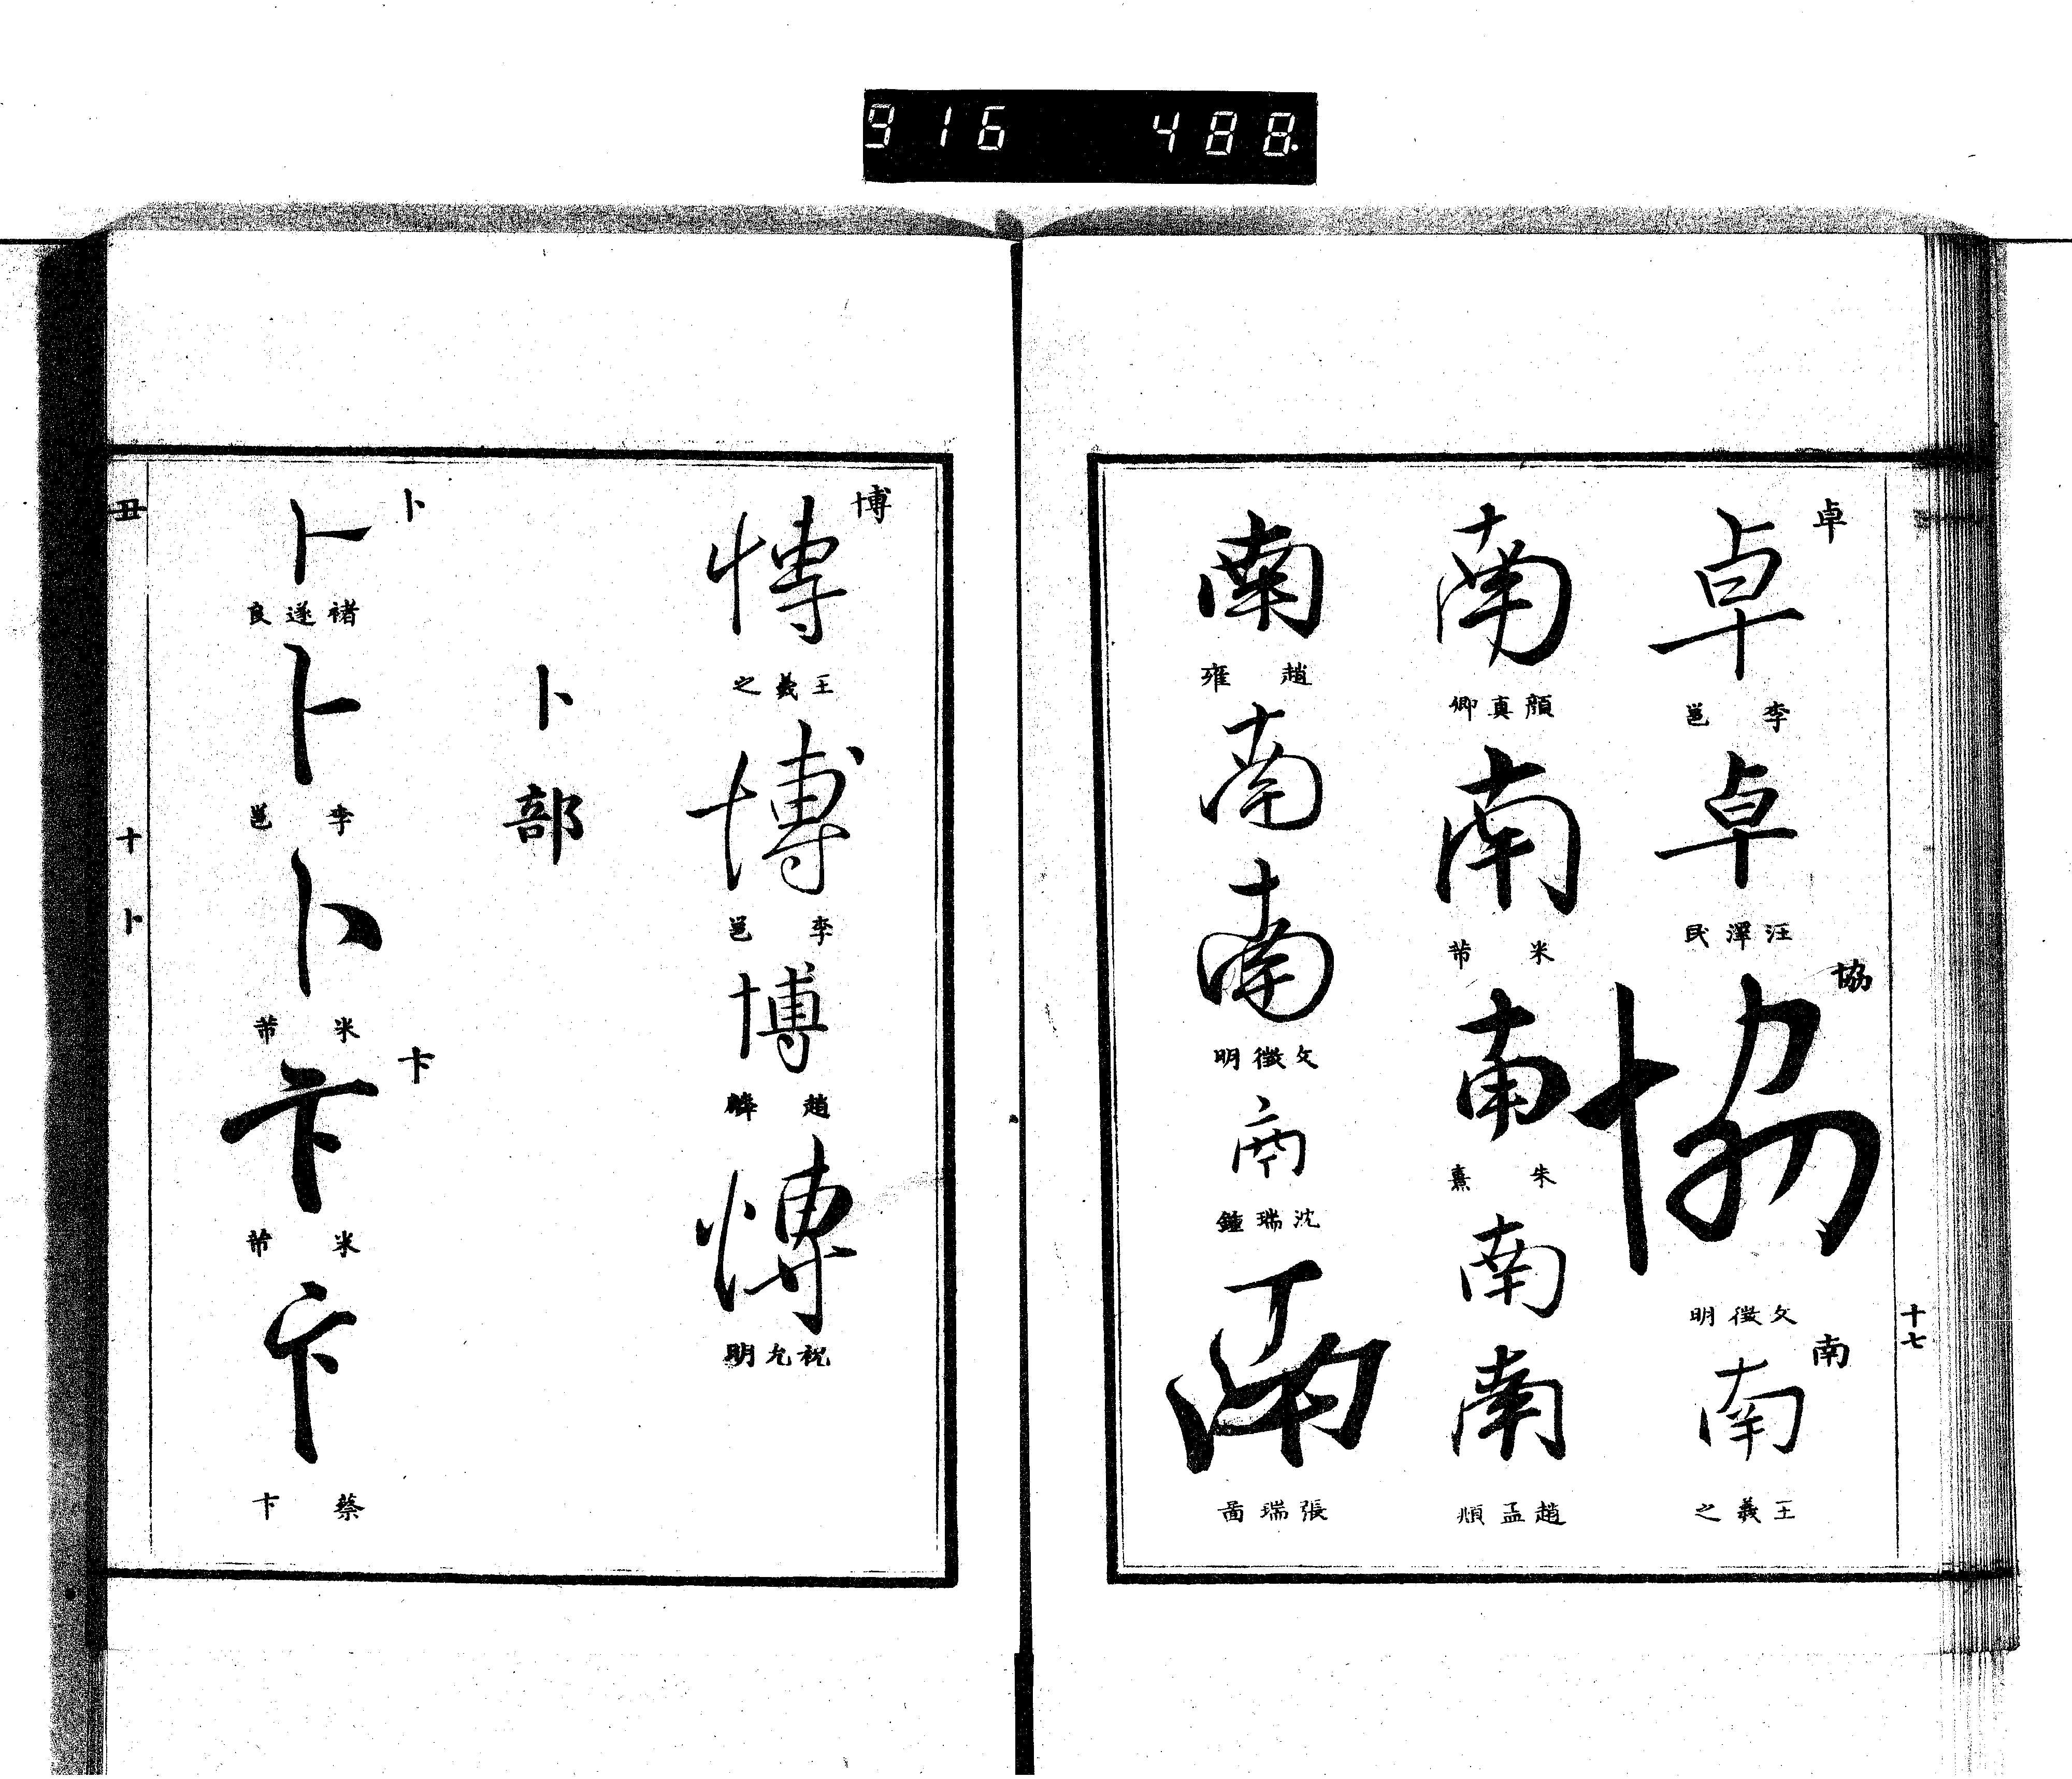 916 488.
十七
卓
卓
李邕
卓
汪澤民
協
協
文徵明
南
南
王羲之
南
顏真卿
南
米芾
南
朱熹
南
南
趙孟頫
南
趙雍
南
南
文徵明
南
沈瑞鍾
南
張瑞啚
博
博
王羲之
博
李邕
博
趙麟
博
祝允明
卜部
卜
卜
褚遂良
卜
李邕
卜
米芾
卞
卞
米芾
卞
蔡卞
丑
十
卜